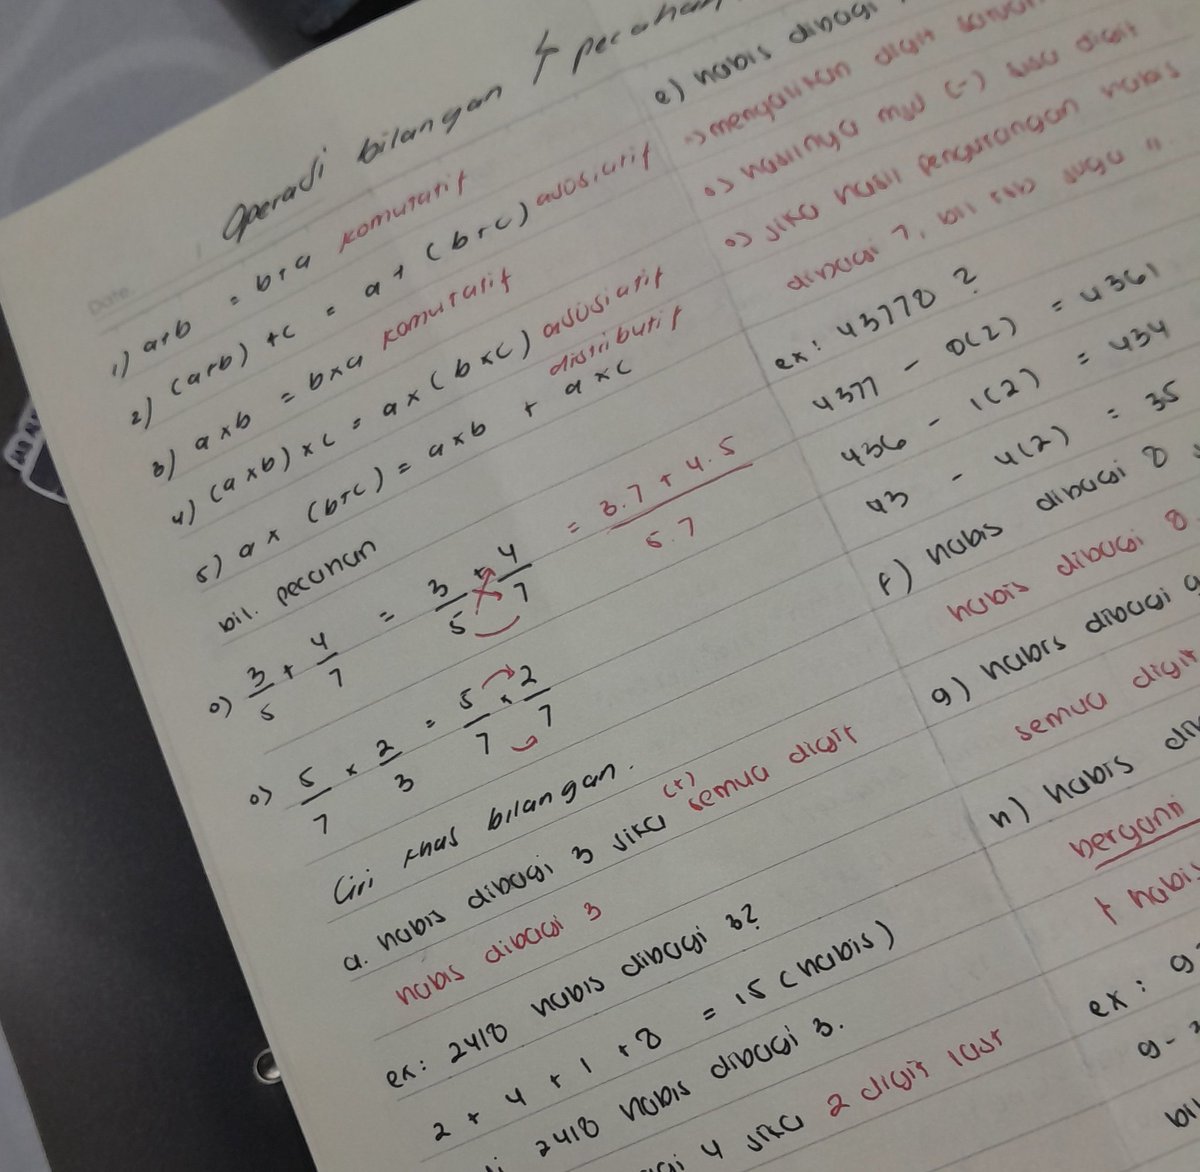 Operasi bilangan & pecahan
Date
1) a+b = b+a komutatif
2) (a+b) +c = a + (b+c) asosiatif
3) a×b = b×a komutatif
4) (a×b)×c = a×(b×c) asosiatif
5) a× (b+c) = a×b + a×c distributif
bil. pecahan
o) 3/5 + 4/7 = 3/5 + 4/7 = 3.7 + 4.5 / 5.7
o) 5/7 × 2/3 = 5/7 × 2/7
Ciri khas bilangan.
a. habis dibagi 3 jika (+) semua digit
habis dibagi 3
ex: 2418 habis dibagi 3?
2 + 4 + 1 + 8 = 15 (habis)
2418 habis dibagi 3.
4 jika 2 digit last
e) habis dibagi
o) mengalikan digit
o) hasilnya mw (-) sisa digit
o) jika hasil pengurangan habis
dibagi 7, bil tsb juga "
ex: 43778 ?
4377 - 8(2) = 4361
436 - 1(2) = 434
43 - 4(2) = 35
f) habis dibagi 8
habis dibagi 8
g) habis dibagi 9
semua digit
h) habis
berganti
+ habis
ex: 9
9 -